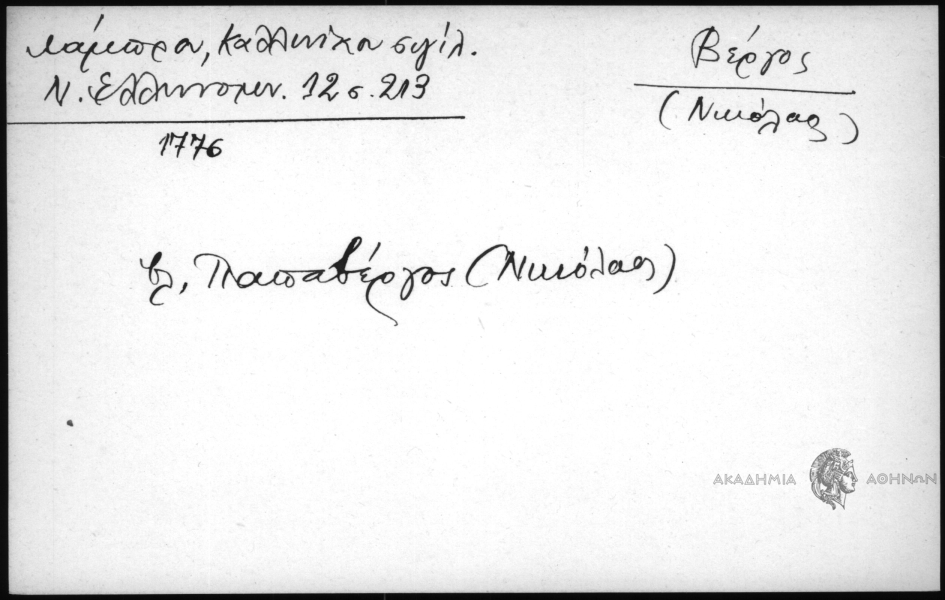 Λάμπρου, Καλλινίκου σιγίλ.
Ν. Ελληνομν. 12 σ. 213
1776
Βέργος
(Νικόλαος)
βλ. Παπαβέργος (Νικόλαος)
ΑΚΑΔΗΜΙΑ ΑΘΗΝΩΝ